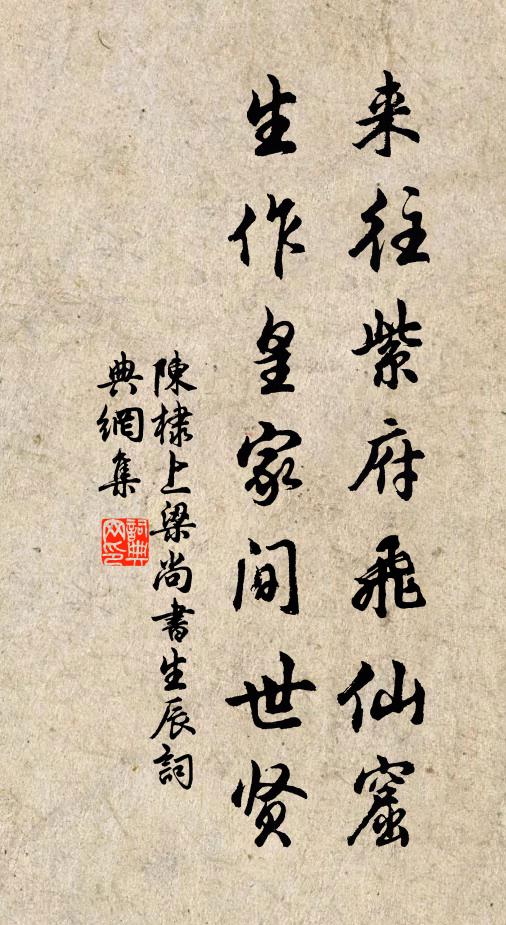 来往紫府飛仙窟
生作皇家間世贤
陳棣上梁尚書生辰詞
典網集
詞典网印